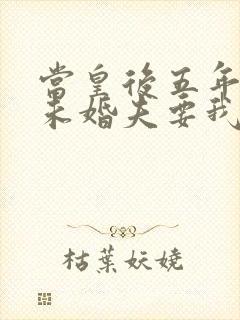 當皇後五年
未婚夫要我
枯葉妖嬈